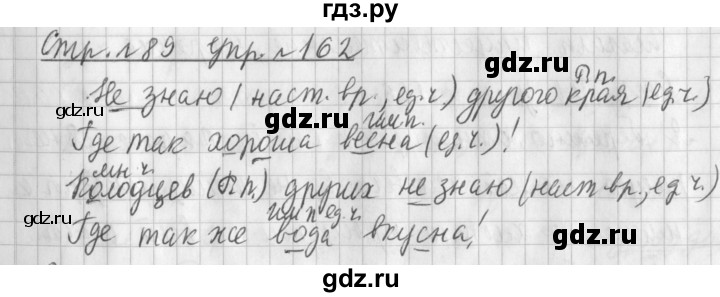 гдз.ру
Стр. № 89 упр. № 162
gdz.ru
Пп.
Не знаю (наст. вр., ед. ч.) другого края (ед. ч.)
gdz.ru
им п.
Где так хороша весна (ед. ч.)!
мн ч.
Колодцев (Пп) других не знаю (наст. вр., ед ч.)
gdz.ru
им п ед. ч.
gdz.ru
Где так же вода вкусна!
gdz.ru